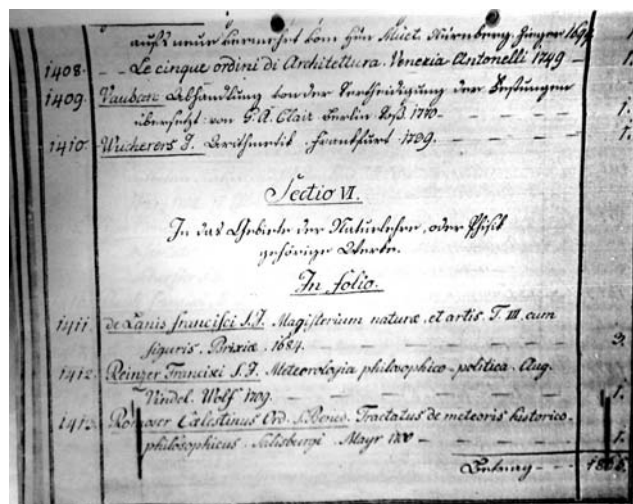 aufs neue vermehrt von Hrn Muet. Nürnberg. Zieger 1694
1408. - - Le cinque ordini di Architettura. Venezia Antonelli 1749 - 1.
1409. Vauban Abhandlung von der Vertheidigung der Festungen
übersetzt von G. A. Clair Berlin 1770. - - - 1.
1410. Wucherers J. Arithmetik. Frankfurt 1739. - - - 1.
Sectio VI.
In das Gebiete der Naturlehre, oder Phisik
gehörige Werke.
In folio.
1411. de Lanis francisci S. J. Magisterium naturæ, et artis. T. III. cum
figuris. Brixiæ. 1684. - - - 3.
1412. Reinzer Francisci S. J. Meteorologia philosophico-politica. Aug.
Vindel. Wolf 1709. - - - 1.
1413. Cælestinus Ord. S. Bened. Tractatus de meteoris historico-
philosophicus. Salisburgi Mayr 1700 - - - 1.
Betrag - - -